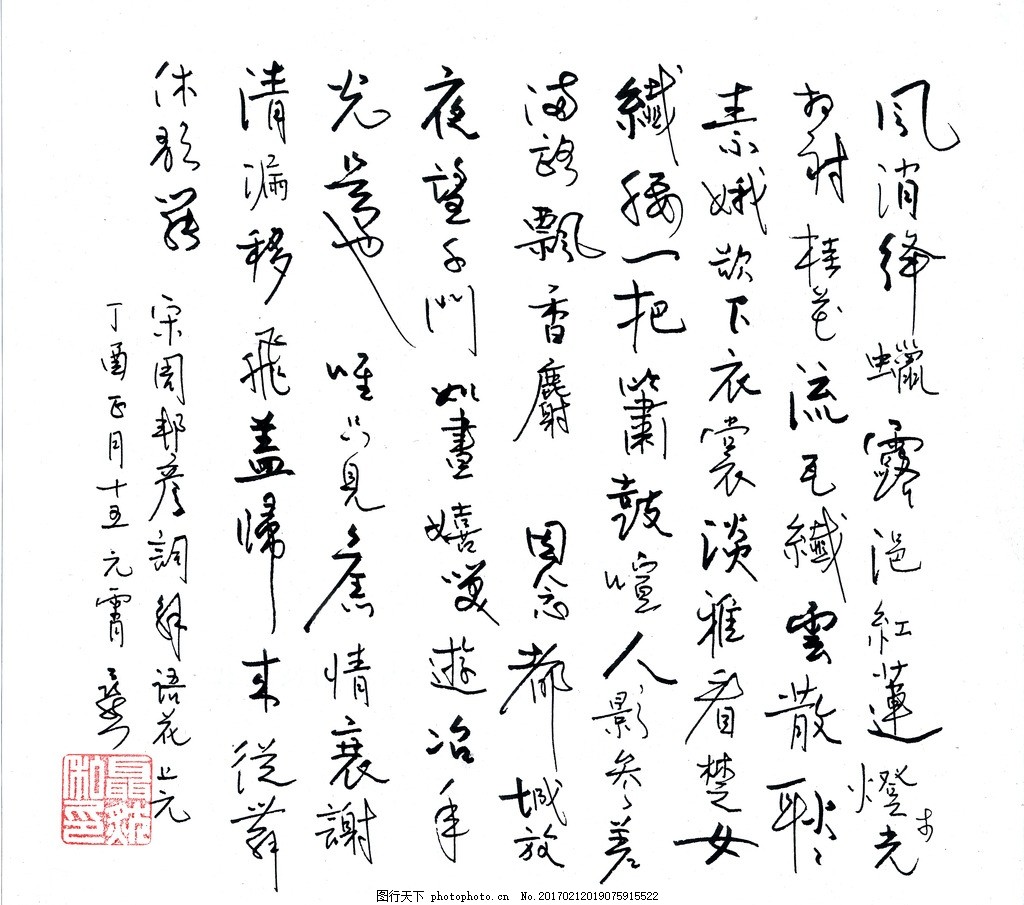 風消絳蠟露浥紅蓮燈市光
相射桂花流瓦纖雲散耿々
素娥欲下衣裳淡雅看楚女
纖腰一把簫鼓喧人影參差
滿路飄香麝 因念都城放
夜望千門如晝嬉笑遊冶年
光是也 唯只見舊情衰謝
清漏移飛蓋歸來從舞
休歌罷
宋周邦彥詞解語花上元
丁酉正月十五元宵
图行天下 photophoto.cn No.20170212019075915522